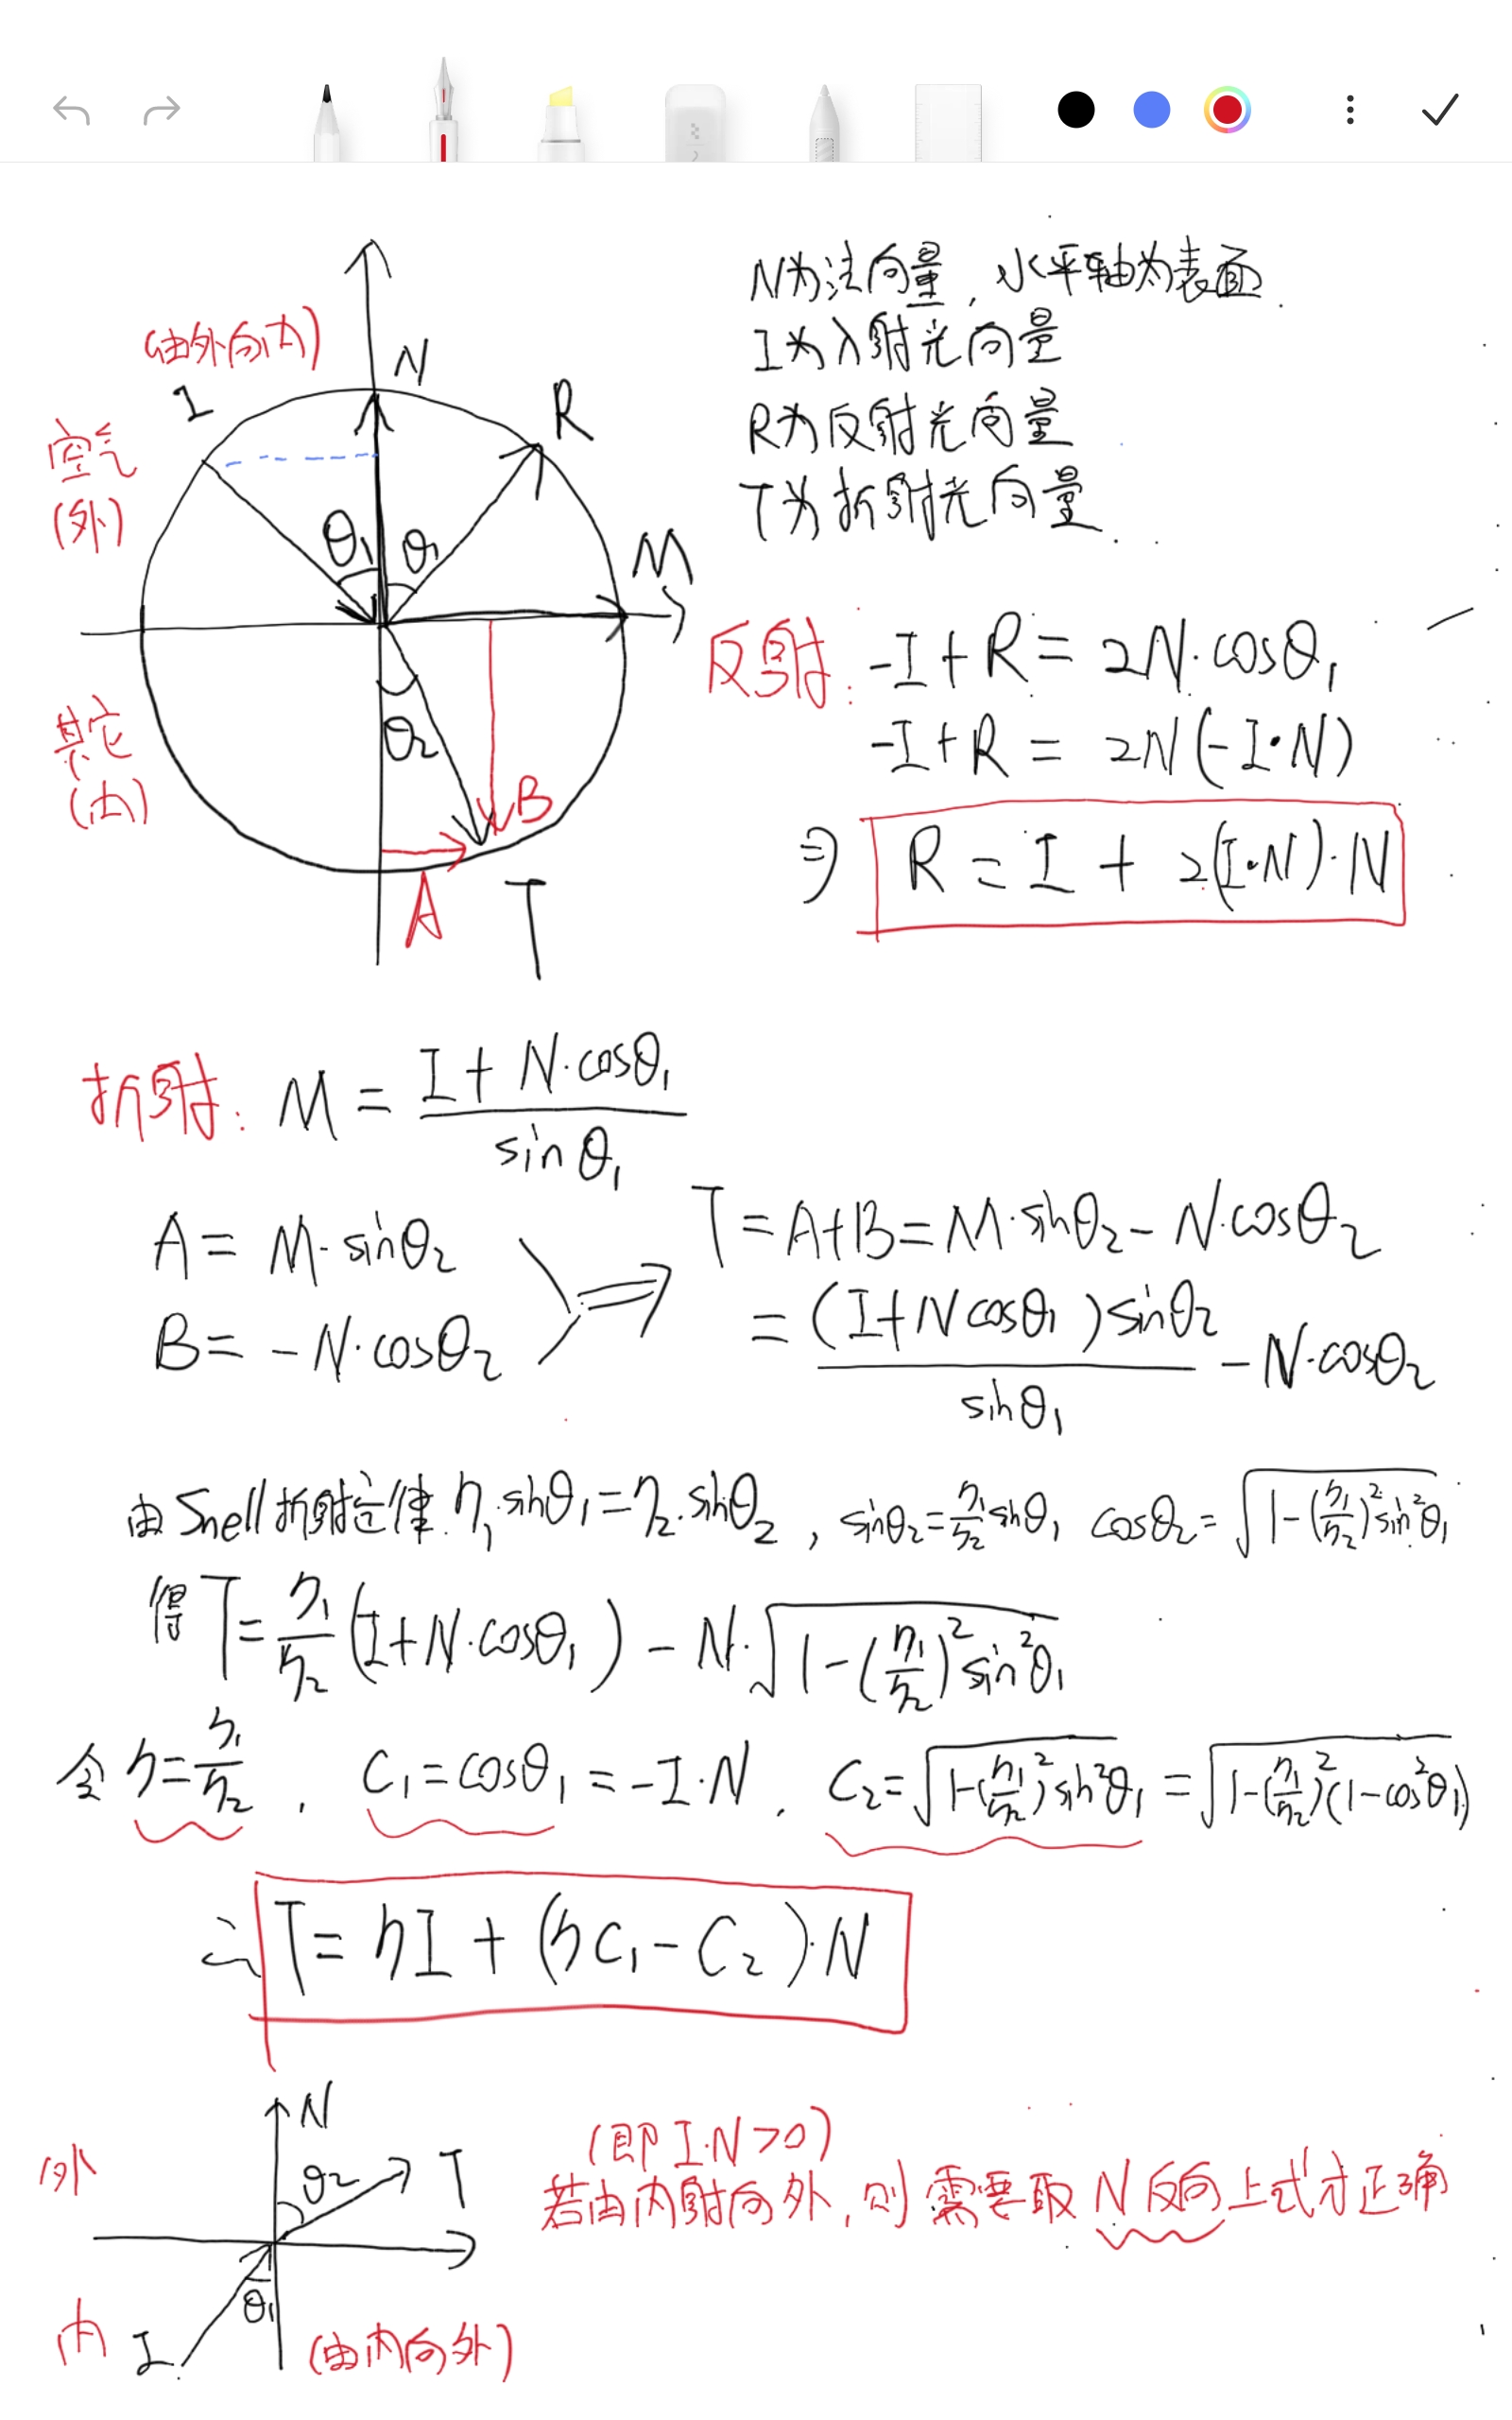 (由外向内)
I
N
R
空气
(外)
θ₁
θ₁
M
其它
(内)
θ₂
B
A
T
N为法向量,水平轴为表面.
I为入射光向量
R为反射光向量
T为折射光向量.
反射: -I+R = 2N·cosθ₁
-I+R = 2N(-I·N)
⇒ R = I + 2(I·N)·N
折射: M = (I + N·cosθ₁)/sinθ₁
A = M·sinθ₂
B = -N·cosθ₂
⇒ T = A+B = M·sinθ₂ - N·cosθ₂
= (I+Ncosθ₁)sinθ₂/sinθ₁ - N·cosθ₂
由Snell折射定律 η₁·sinθ₁=η₂·sinθ₂, sinθ₂=η₁/η₂ sinθ₁ cosθ₂=√(1-(η₁/η₂)²sin²θ₁)
得 T=η₁/η₂(I+N·cosθ₁) - N·√(1-(η₁/η₂)²sin²θ₁)
令 η=η₁/η₂, C₁=cosθ₁=-I·N, C₂=√(1-(η₁/η₂)²sin²θ₁)=√(1-(η₁/η₂)²(1-cos²θ₁))
∴ T = ηI + (ηC₁-C₂)·N
N
外
θ₂
T
(即 I·N>0)
若由内射向外,则需要取N反向上式才正确
θ₁
内
I
(由内向外)